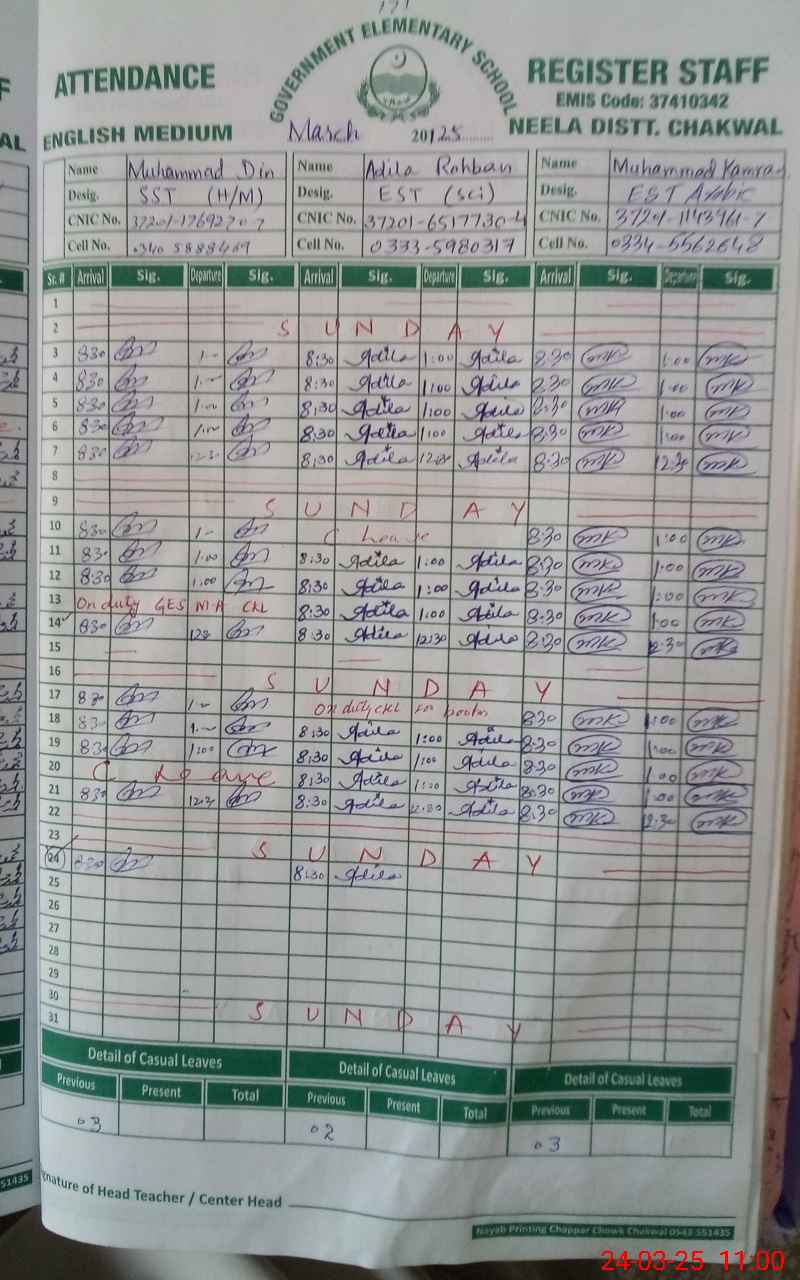 ATTENDANCE
GOVERNMENT ELEMENTARY SCHOOL
REGISTER STAFF
EMIS Code: 37410342
ENGLISH MEDIUM
March 20125
NEELA DISTT. CHAKWAL
Name Muhammad Din Name Adila Rohban Name Muhammad Kamran
Desig. SST (H/M) Desig. EST (Sci) Desig. EST Arabic
CNIC No. CNIC No. 37201-6517730-4 CNIC No.
Cell No. Cell No. 0333-5980317 Cell No. 0334-5562648
Sr. # Arrival Sig. Departure Sig. Arrival Sig. Departure Sig. Arrival Sig. Departure Sig.
1
2 SUNDAY
3 830 1.00 8:30 Adila 1:00 Adila 8:30 MK 1:00 MK
4 830 1.00 8:30 Adila 1:00 Adila 8:30 MK 1:00 MK
5 830 1.00 8:30 Adila 1:00 Adila 8:30 MK 1:00 MK
6 830 1.00 8:30 Adila 1:00 Adila 8:30 MK 1:00 MK
7 830 1230 8:30 Adila 12:30 Adila 8:30 MK 12:30 MK
8
9 SUNDAY
10 830 1.00 C leave 8:30 MK 1:00 MK
11 830 1.00 8:30 Adila 1:00 Adila 8:30 MK 1:00 MK
12 830 1.00 8:30 Adila 1:00 Adila 8:30 MK 1:00 MK
13 On duty GES M.A CKL 8:30 Adila 1:00 Adila 8:30 MK 1:00 MK
14 830 1230 8:30 Adila 12:30 Adila 8:30 MK 12:30 MK
15
16 SUNDAY
17 830 1.00 On duty CKL for books 8:30 MK 1:00 MK
18 830 1.00 8:30 Adila 1:00 Adila 8:30 MK 1:00 MK
19 830 1:00 8:30 Adila 1:00 Adila 8:30 MK 1:00 MK
20 C Leave 8:30 Adila 1:00 Adila 8:30 MK 1:00 MK
21 830 1230 8:30 Adila 12:30 Adila 8:30 MK 12:30 MK
22
23 SUNDAY
24 830 8:30 Adila
25
26
27
28
29
30 SUNDAY
31
Detail of Casual Leaves Detail of Casual Leaves Detail of Casual Leaves
Previous Present Total Previous Present Total Previous Present Total
03 02 03
gnature of Head Teacher / Center Head
Nayab Printing Chappar Chowk Chakwal 0543 551435
24-03-25 11:00